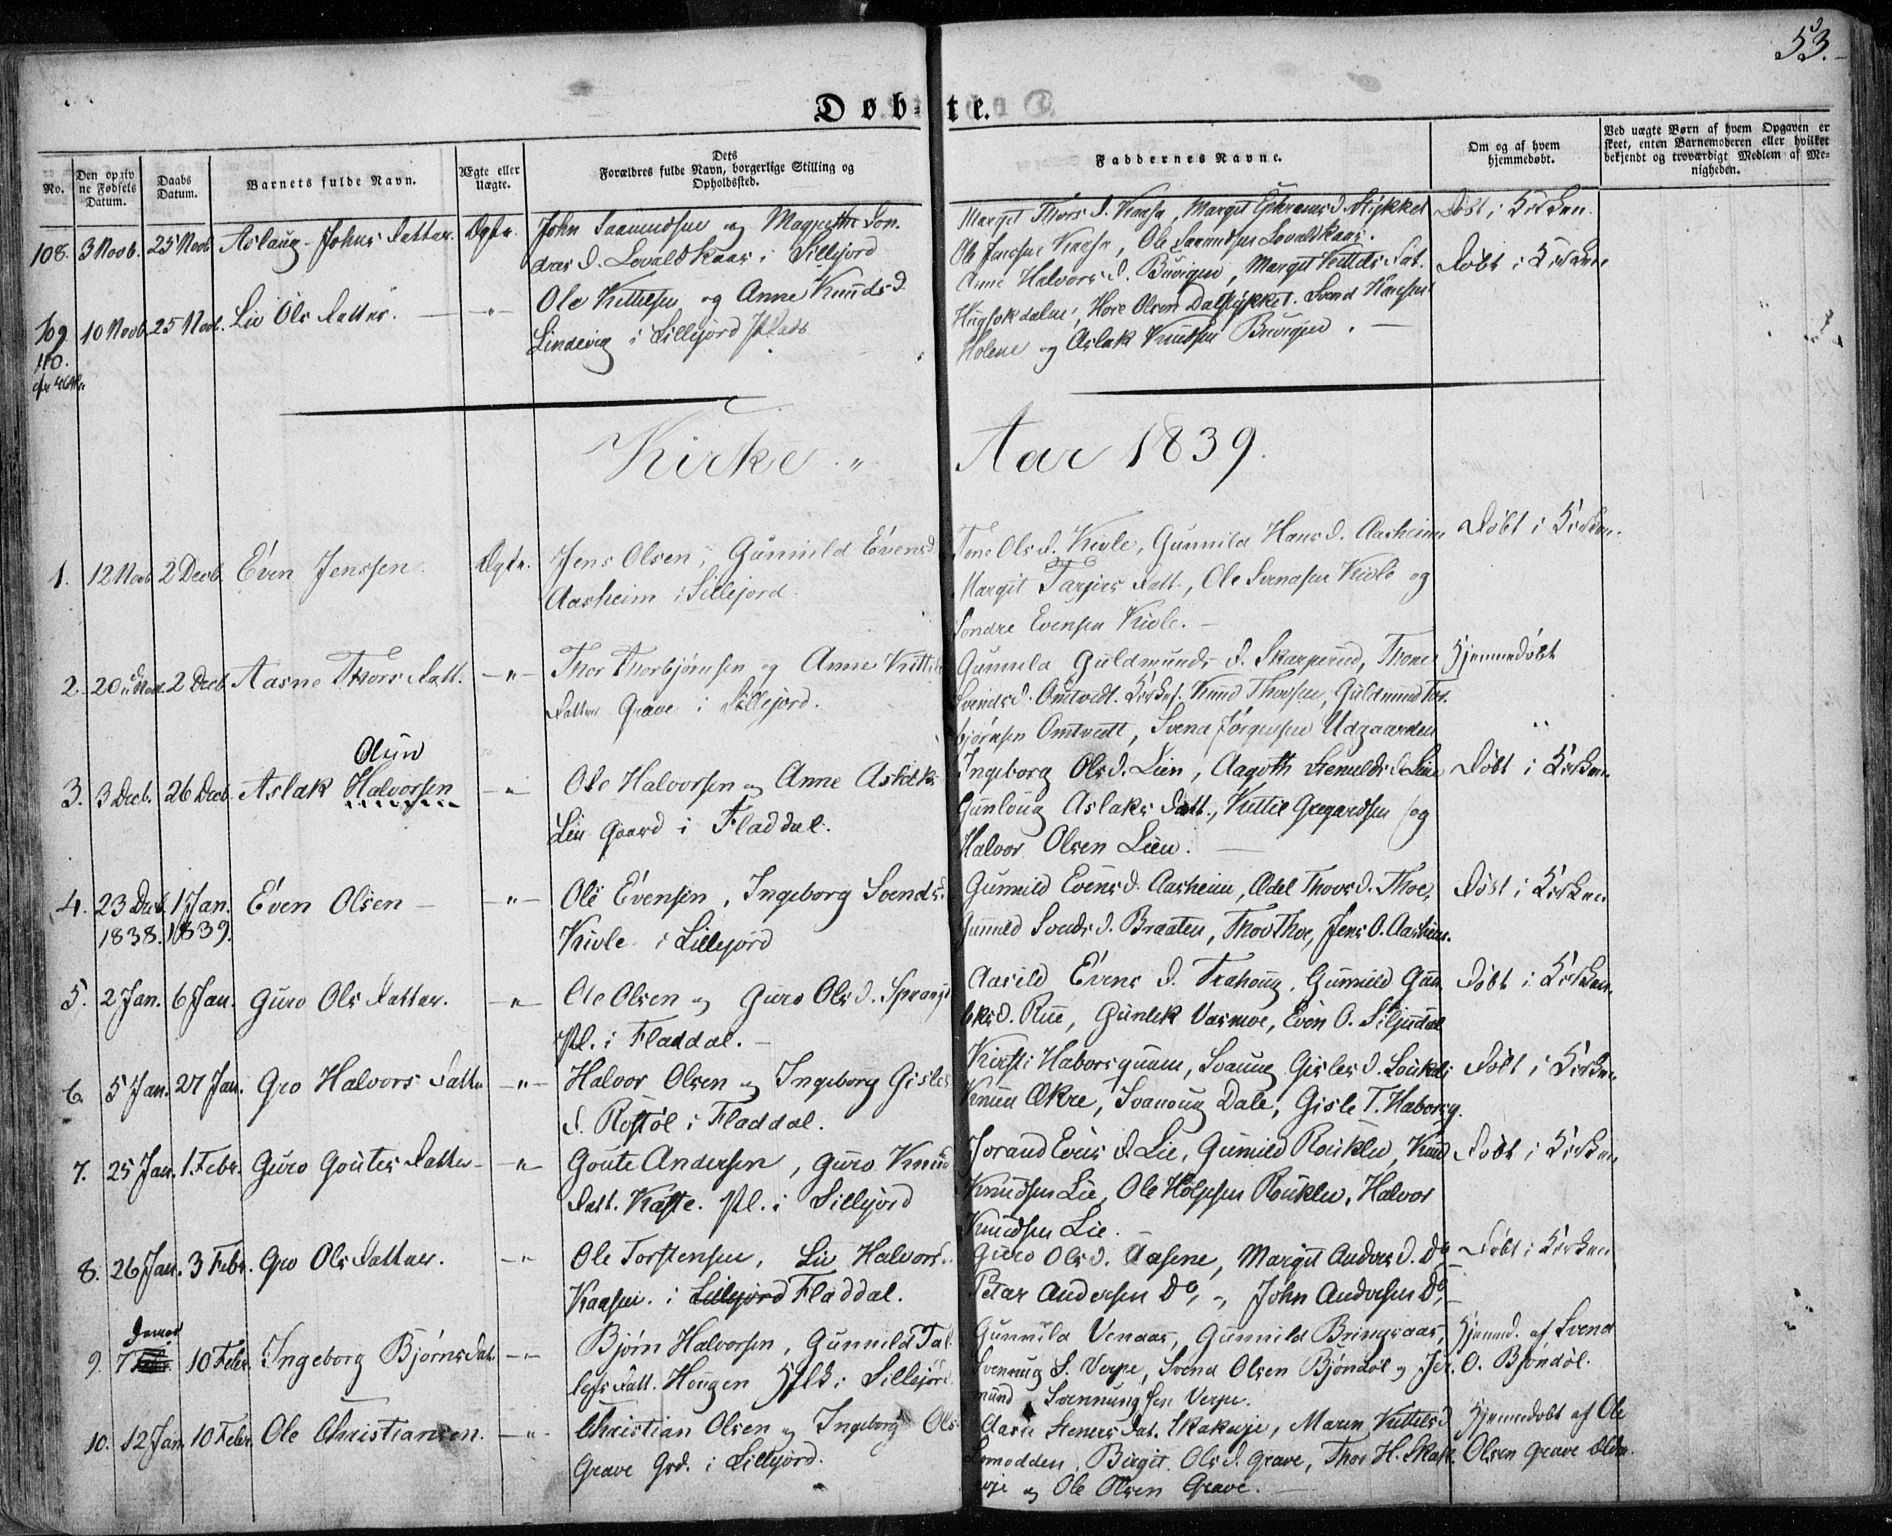 53.
Døbte.
No.
Den opgivne Fødsels Datum.
Daabs Datum.
Barnets fulde Navn.
Ægte eller Uægte.
Dets Forældres fulde Navn, borgerlige Stilling og Opholdssted.
Faddernes Navne.
Om og af hvem hjemmedøbt.
Ved uægte Børn af hvem Opgaven er skeet, enten Barnemoderen eller hvilket bekjendt og troværdigt Medlem af Menigheden.
108. 3 Novb. 25 Novb. Aslaug Johns Datter. Ægte.
John Saamundsen og Margrethe Son-
dres D. Lovaldskaas i Sillejord
Margit Thors D. Kaasa, Margit D. Stykket
Ole Kaasa, Ole Saamundsen Lovaldskaas.
Døbt i Kirken.
109 10 Novb. 25 Novb. Liv Ols Datter. — " —
Ole Kittelsen og Anne Knuds D.
Lindevig i Sillejord Plads
Anne Halvors D. Buvigen, Margit Kittels Dat.
Olsen Dalstykket. Svend Hansen
Holene og Aslak Knudsen Buvigen. —
Døbt i Kirken
110.
Kirke " Aar 1839.
1. 12 Novb. 2 Decb. Even Jenssen. Ægte.
Jens Olsen, Gunnild Evens D.
Aasheim i Sillejord.
Tone Ols D. Kivle, Gunnild Hans D. Aasheim
Margit Tarjers Datt., Ole Svendsen Kivle og
Sondre Evensen Kivle. —
Døbt i Kirken.
2. 20 Novb. 2 Decb. Aasne Thors Datt. — " —
Thor Thorbjørnsen og Anne Kittils
Datter Grave i Sillejord.
Gunnild Guldmunds D. Skarperud, Thone
Svends D. Omtvedt. Knud Thorsen, Guldmund Tor-
bjørnsen Omtvedt, Svend Jørgensen Utgaarden
Hjemmedøbt
"
3. 3 Decb. 26 Decb. Aslak Halvorsen
Olsen
— " Ole Halvorsen og Anne Aslaks
Lien Gaard i Fladdal.
Ingeborg Ols D. Lien, Aagoth D. Lien
Gunloug Aslaks Datt., Kittil Gregardsen og
Halvor Olsen Lien. —
Døbt i Kirken
4. 23 Decb. 1 Jan. Even Olsen — — " —
1838. 1839.
Ole Evensen, Ingeborg Svends
Kivle i Sillejord
Gunnild Evens D. Aasheim, Ædel Thors D. Thoe,
Gunnild Svends D. Braaten, Thov Thoe, Jens O. Aasheim.
Døbt i Kirken
5. 2 Jan. 6 Jan. Guro Ols Datter. — " —
Ole Olsen og Guro Ols D.
Pl. i Fladdal. —
Aasild Evens D. Trahoug, Gunnild Gun-
leks D. Rue, Gunlek Vasmoe, Even O. Siljudal
Døbt i Kirken.
6. 5 Jan. 27 Jan. Gro Halvors Datter — " —
Halvor Olsen og Ingeborg Gisles
D. Rostøl i Fladdal.
Kirsti Haborsquam, Svanug Gisles D.
Knud Økre, Svanoug Dale, Gisle T. Haborsq.
Døbt i Kirken
7. 25 Jan. 1. Febr. Guro Goutes Datter — — " —
Goute Andersen, Guro Knud
Datt. Kaste. Pl. i Sillejord
Jorand Evens D. Lie, Gunnild Rouklev, Knud
Knudsen Lie, Ole Rouklev, Halvor
Knudsen Lie.
Døbt i Kirken
8. 26 Jan. 3 Febr. Gro Ols Datter. — " —
Ole Torstensen, Liv Halvors
Kaasen. i Sillejord Fladdal.
Guro Ols D. Aasene, Margit Anders D. Do
Petar Andersen Do, ", John Andersen Do, —
Døbt i Kirken
9. 7 10 Febr. Ingeborg Bjørns Dat. — " —
Bjørn Halvorsen, Gunnild Tal-
lefs Datt. Hougen i Sillejord.
Gunnild Venaas, Gunnild Bringsaas,
Svennug S. Verpe, Svend Olsen Bjøndøl og Jer-
mund Svennungsen Verpe.
Hjemmd. af Svend
O. Bjøndøl.
10. 12 Jan. 10 Febr. Ole Christiansen. — " —
Christian Olsen og Ingeborg Ols
Grave Grd. i Sillejord.
Steners Dat. Maren Kittels D
Birgit Ols D. Grave, Thor H. Skak-
og Ole Olsen Grave. —
Hjemmedøbt af Ole
Olsen Grave